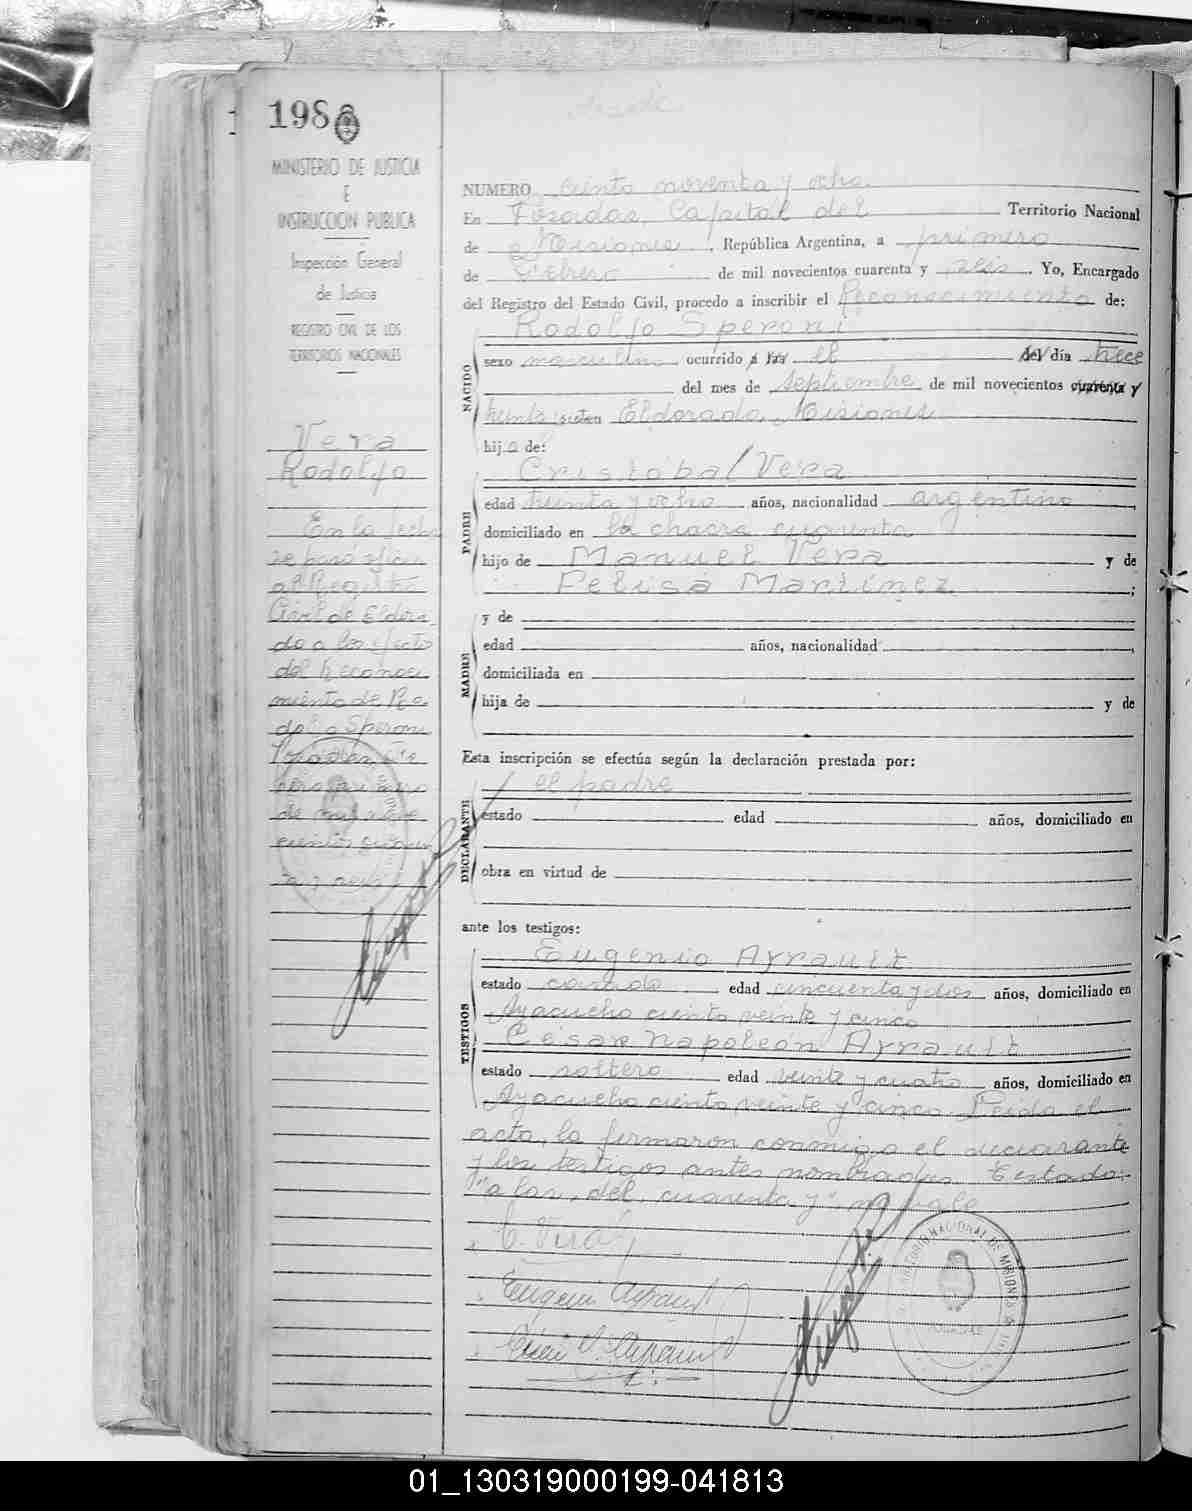 198
MINISTERIO DE JUSTICIA
E
INSTRUCCION PUBLICA
Inspección General
de Justicia
REGISTRO CIVIL DE LOS
TERRITORIOS NACIONALES
Vera
Rodolfo
En la fecha
se pasó oficio
al Registro
Civil de Eldora
do a los efectos
del Reconoci
miento de Ro
dolfo Speroni
Posadas
de mil nove
cientos cuaren
ta y seis
NUMERO ciento noventa y ocho
En Posadas, Capital del Territorio Nacional
de Misiones, República Argentina, a primero
de Febrero de mil novecientos cuarenta y seis. Yo, Encargado
del Registro del Estado Civil, procedo a inscribir el Reconocimiento de:
NACIDO
Rodolfo Speroni
sexo masculino ocurrido a las el del día trece
del mes de septiembre de mil novecientos cuarenta y
treinta siete en Eldorado, Misiones
hijo de:
PADRE
Cristóbal Vera
edad treinta y ocho años, nacionalidad argentino
domiciliado en la chacra cuarenta
hijo de Manuel Vera y de
Felisa Martínez;
MADRE
y de
edad años, nacionalidad
domiciliada en
hija de y de
Esta inscripción se efectúa según la declaración prestada por:
DECLARANTE
el padre
estado edad años, domiciliado en
obra en virtud de
ante los testigos:
TESTIGOS
Eugenio Ayrault
estado casado edad cincuenta y dos años, domiciliado en
Ayacucho ciento veinte y cinco
César Napoleón Ayrault
estado soltero edad veinte y cuatro años, domiciliado en
Ayacucho ciento veinte y cinco. Leida el
acta, la firmaron conmigo el declarante
y los testigos antes nombrados. Testado:
"a las, del, cuarenta y", no vale
C. Vera
Eugenio Ayrault
César N. Ayrault
TERRITORIO NACIONAL DE MISIONES
POSADAS
01_130319000199-041813